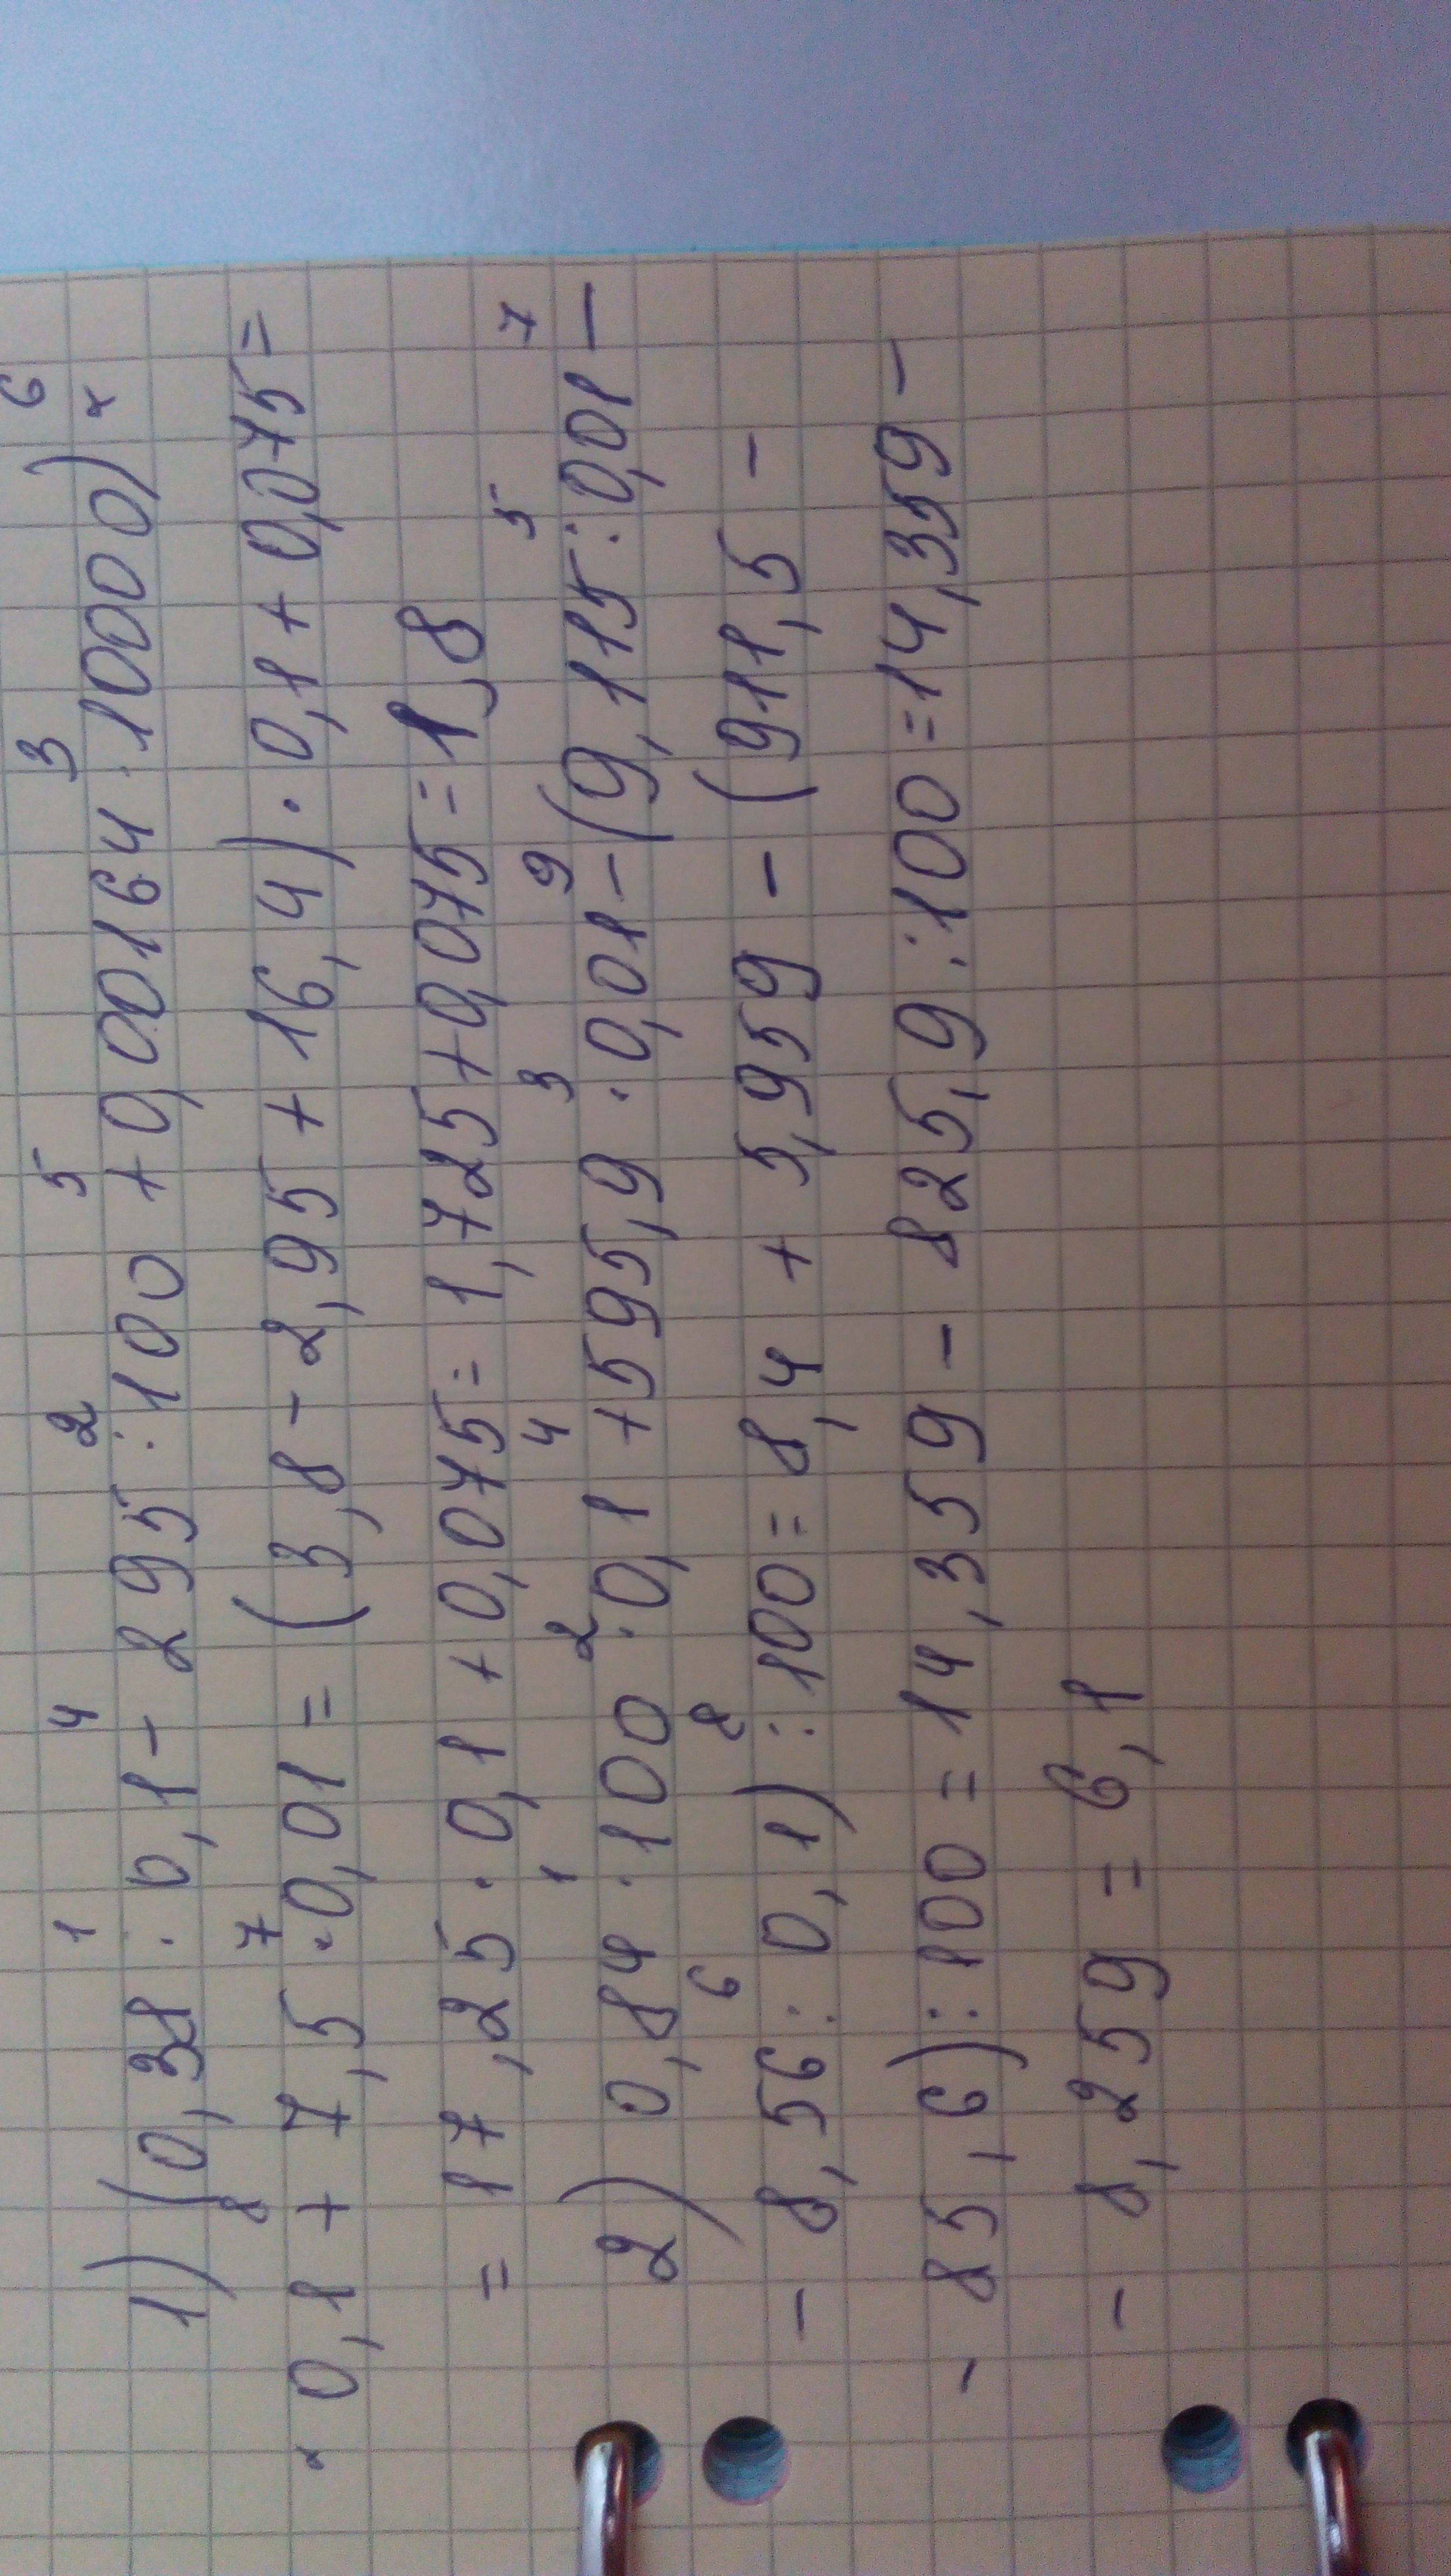 1 4 2 5 3 6
1) (0,38 : 0,1 - 295 : 100 + 0,00164 · 10000) ×
8 7
× 0,1 + 7,5 · 0,01 = (3,8 - 2,95 + 16,4) · 0,1 + 0,075 =
= 17,25 · 0,1 + 0,075 = 1,725 + 0,075 = 1,8
1 2 4 3 9 5 7
2) 0,84 · 100 · 0,1 + 595,9 · 0,01 - (9,115 : 0,01 -
6 8
- 8,56 : 0,1) : 100 = 8,4 + 5,959 - (911,5 -
- 85,6) : 100 = 14,359 - 825,9 : 100 = 14,359 -
- 8,259 = 6,1